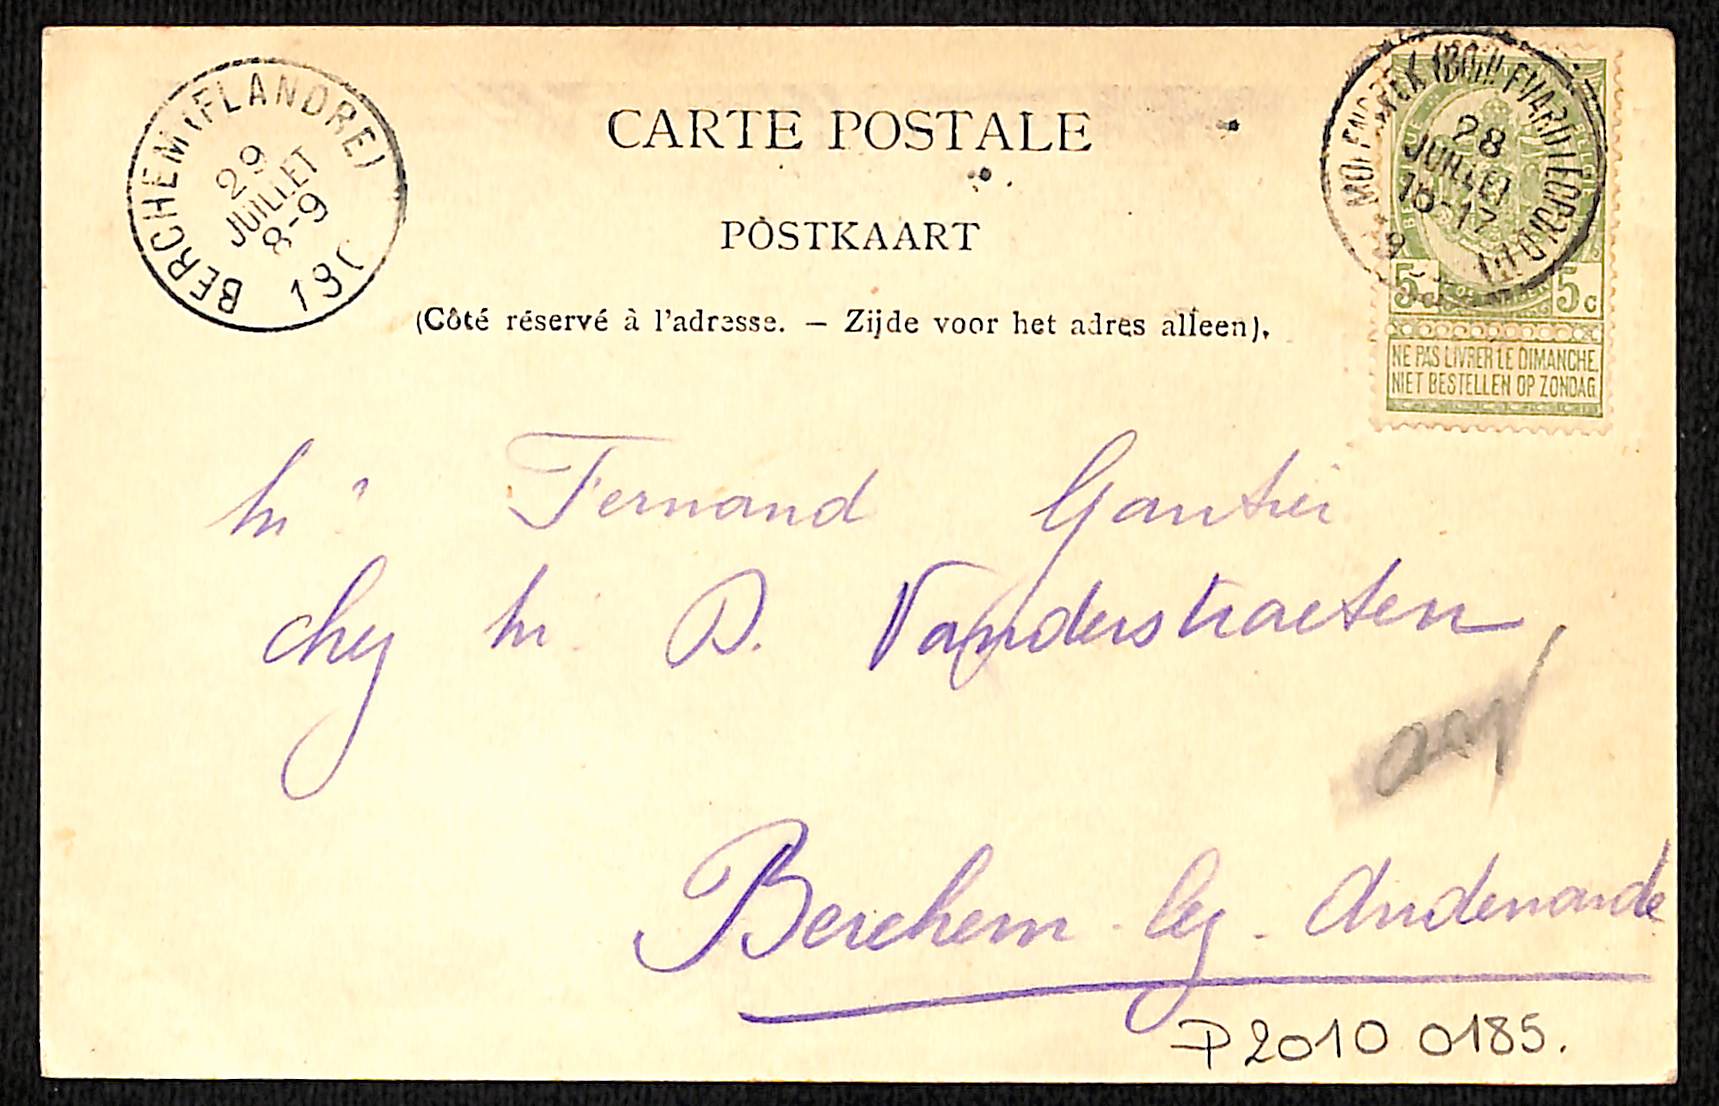 CARTE POSTALE
POSTKAART
(Côté réservé à l'adresse. — Zijde voor het adres alleen).
BERCHEM (FLANDRE)
29
JUILLET
8-9
190
MOLENBEEK (BOULEVARD LÉOPOLD II)
28
JUILLET
16-17
5c 5c
NE PAS LIVRER LE DIMANCHE.
NIET BESTELLEN OP ZONDAG.
Mr Fernand Gautier
chez Mr D. Vanderstraeten,
Berchem-lez-Audenaarde
P2010 0185.